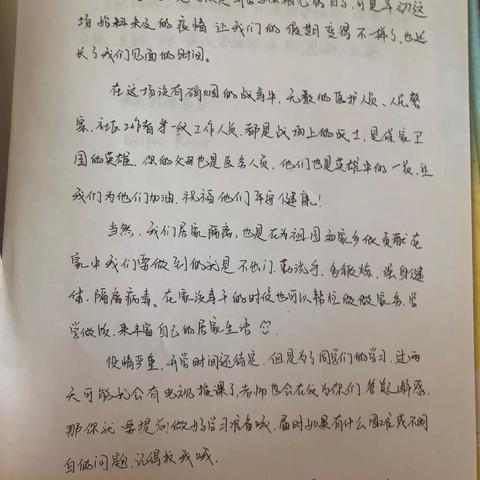 场始料未及的疫情让我们的假期变得不一样了,也延
长了我们见面的时间。
在这场没有硝烟的战争中,无数的医护人员、人民警
察、社区工作者等一线工作人员,都是战场上的战士,是保家卫
国的英雄。你的父母也是医务人员,他们也是英雄中的一员,让
我们为他们加油,祝福他们平安健康!
当然,我们居家隔离,也是在为祖国和家乡做贡献,在
家中我们需做到的就是不出门、勤洗手、多锻炼、强身健
体,隔离病毒。在家没事干的时候也可以帮忙做做家务,学
学做饭,来丰富自己的居家生活
疫情严重,开学时间还待定,但是为了同学们的学习,过两
天可能就会有电视授课了,老师也会在线为你们答疑解惑,
那你就要提前做好学习准备哦,届时如果有什么困难或不明
白的问题,记得找我哦.